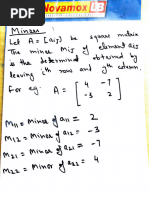 Novamox LB
Minors :
Let A = [aij] be square matrix
The minor Mij of element aij
is the determinant obtained by
leaving ith row and jth column.
For eg: A = [4 -7
-3 2]
M11 = Minor of a11 = 2
M12 = Minor of a12 = -3
M21 = Minor of a21 = -7
M22 = Minor of a22 = 4